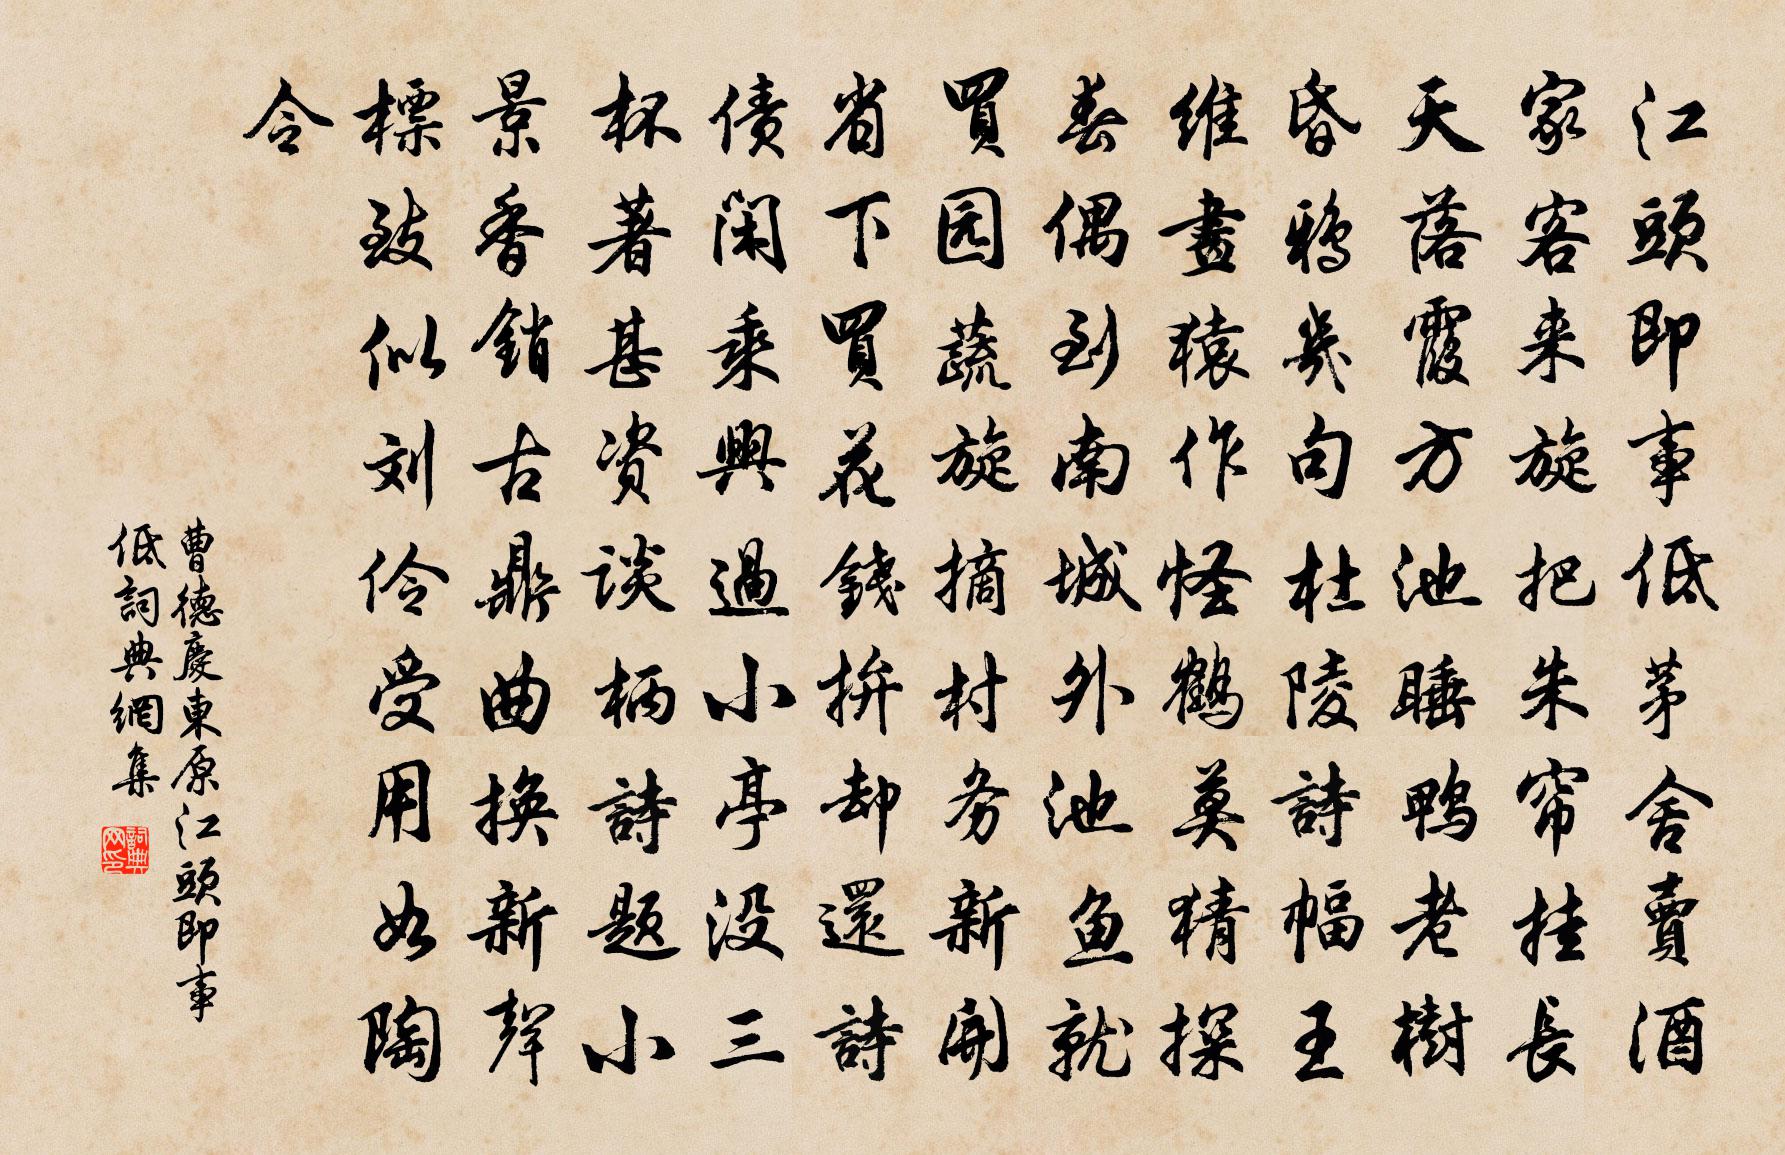 江頭即事低茅舍賣酒
家客来旋把朱帘挂長
天落霞方池睡鴨老樹
昏鴉幾句杜陵詩幅王
維畫猿作怪鶴莫猜探
春偶到南城外池魚就
買园蔬旋摘村务新開
省下買花錢拚却還詩
債閑乘興過小亭没三
杯著甚资談柄詩题小
景香銷古鼎曲换新聲
標致似刘伶受用如陶
令
曹德慶東原江頭即事
低詞典網集
詞典网印